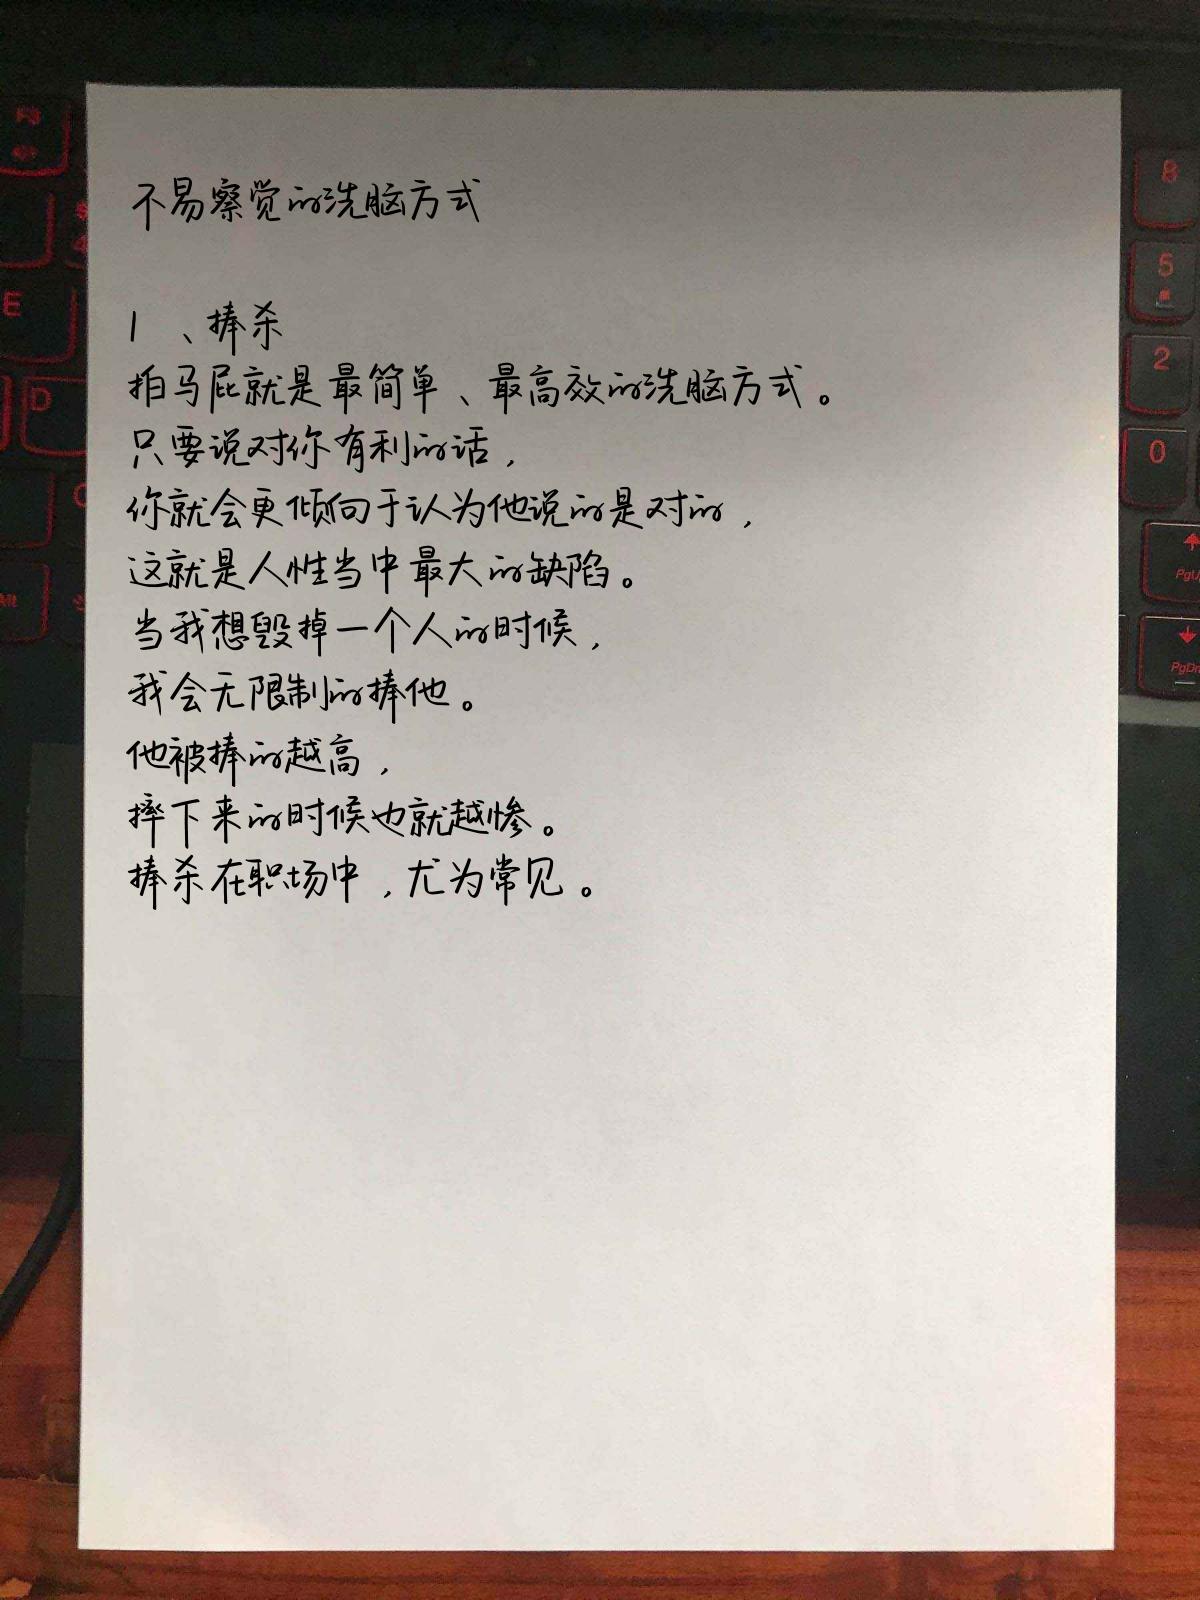 不易察觉的洗脑方式
1、捧杀
拍马屁就是最简单、最高效的洗脑方式。
只要说对你有利的话，
你就会更倾向于认为他说的是对的，
这就是人性当中最大的缺陷。
当我想毁掉一个人的时候，
我会无限制的捧他。
他被捧的越高，
摔下来的时候也就越惨。
捧杀在职场中，尤为常见。
E
D
8
5
2
0
PgU
PgDn